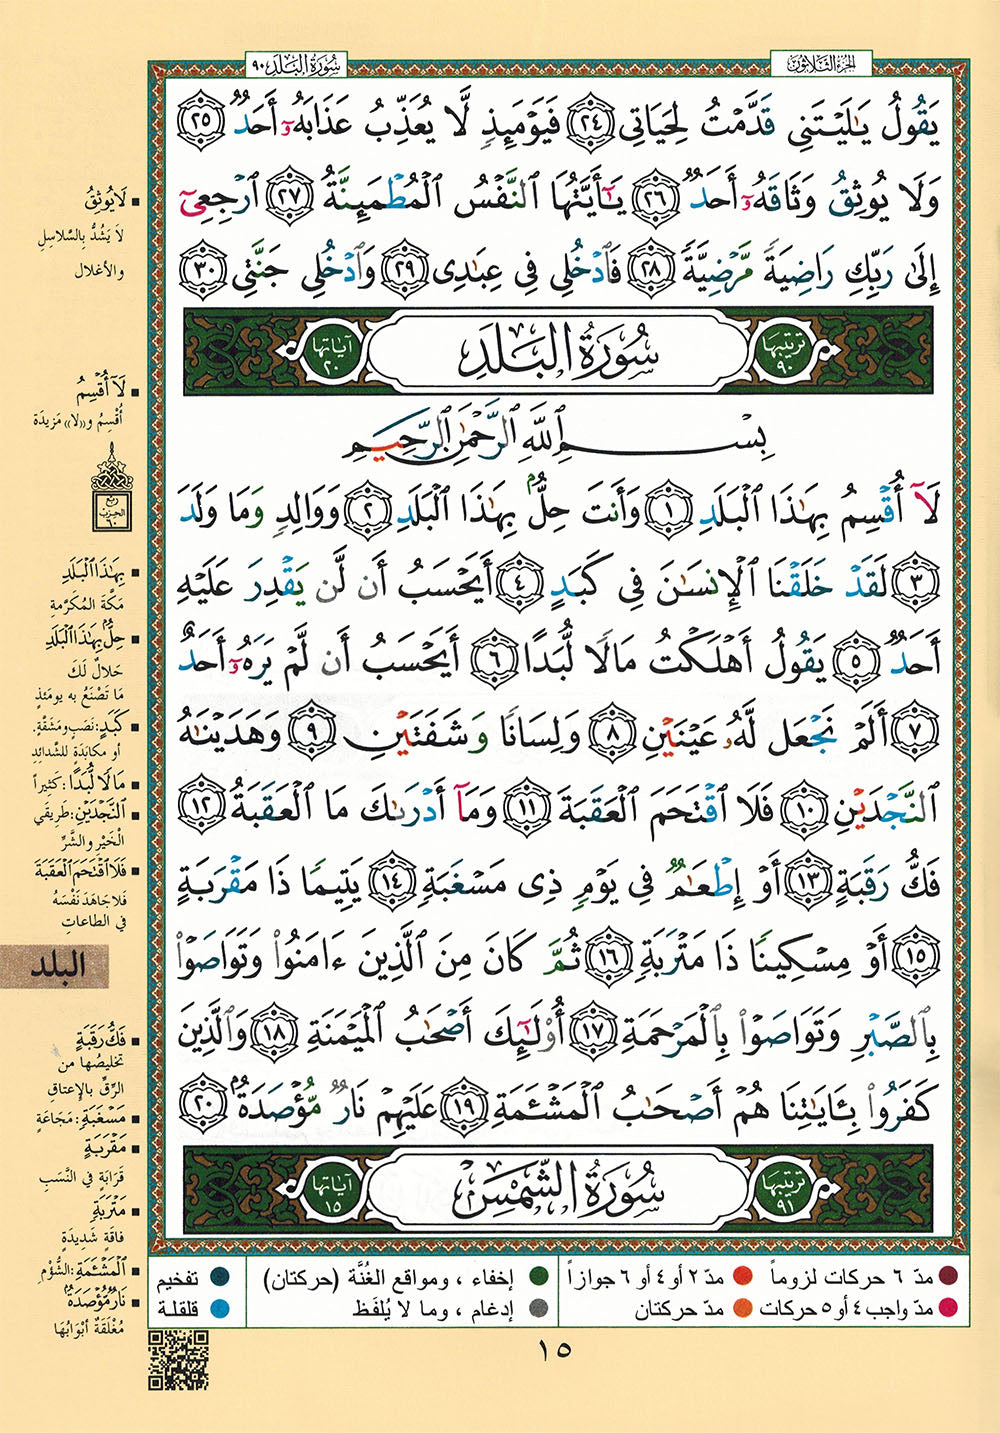 سُورَةُ البَلَد ٩٠
الجزءُ الثَّلاثُون
يَقُولُ يَٰلَيْتَنِى قَدَّمْتُ لِحَيَاتِى ٢٤ فَيَوْمَئِذٍ لَّا يُعَذِّبُ عَذَابَهُۥٓ أَحَدٌ ٢٥
وَلَا يُوثِقُ وَثَاقَهُۥٓ أَحَدٌ ٢٦ يَٰٓأَيَّتُهَا ٱلنَّفْسُ ٱلْمُطْمَئِنَّةُ ٢٧ ٱرْجِعِىٓ
إِلَىٰ رَبِّكِ رَاضِيَةً مَّرْضِيَّةً ٢٨ فَٱدْخُلِى فِى عِبَٰدِى ٢٩ وَٱدْخُلِى جَنَّتِى ٣٠
ترتيبها ٩٠ سُورَةُ البَلَدِ آياتها ٢٠
بِسْمِ ٱللَّهِ ٱلرَّحْمَٰنِ ٱلرَّحِيمِ
لَآ أُقْسِمُ بِهَٰذَا ٱلْبَلَدِ ١ وَأَنتَ حِلٌّۢ بِهَٰذَا ٱلْبَلَدِ ٢ وَوَالِدٍ وَمَا وَلَدَ
٣ لَقَدْ خَلَقْنَا ٱلْإِنسَٰنَ فِى كَبَدٍ ٤ أَيَحْسَبُ أَن لَّن يَقْدِرَ عَلَيْهِ
أَحَدٌ ٥ يَقُولُ أَهْلَكْتُ مَالًا لُّبَدًا ٦ أَيَحْسَبُ أَن لَّمْ يَرَهُۥٓ أَحَدٌ
٧ أَلَمْ نَجْعَل لَّهُۥ عَيْنَيْنِ ٨ وَلِسَانًا وَشَفَتَيْنِ ٩ وَهَدَيْنَٰهُ
ٱلنَّجْدَيْنِ ١٠ فَلَا ٱقْتَحَمَ ٱلْعَقَبَةَ ١١ وَمَآ أَدْرَىٰكَ مَا ٱلْعَقَبَةُ ١٢
فَكُّ رَقَبَةٍ ١٣ أَوْ إِطْعَٰمٌ فِى يَوْمٍ ذِى مَسْغَبَةٍ ١٤ يَتِيمًا ذَا مَقْرَبَةٍ
١٥ أَوْ مِسْكِينًا ذَا مَتْرَبَةٍ ١٦ ثُمَّ كَانَ مِنَ ٱلَّذِينَ ءَامَنُوا۟ وَتَوَاصَوْا۟
بِٱلصَّبْرِ وَتَوَاصَوْا۟ بِٱلْمَرْحَمَةِ ١٧ أُو۟لَٰٓئِكَ أَصْحَٰبُ ٱلْمَيْمَنَةِ ١٨ وَٱلَّذِينَ
كَفَرُوا۟ بِـَٔايَٰتِنَا هُمْ أَصْحَٰبُ ٱلْمَشْـَٔمَةِ ١٩ عَلَيْهِمْ نَارٌ مُّؤْصَدَةٌۢ ٢٠
ترتيبها ٩١ سُورَةُ الشَّمْسِ آياتها ١٥
لَا يُوثِقُ
لَا يَشُدُّ بِالسَّلاسِلِ
والأغلال
لَآ أُقْسِمُ
أُقْسِمُ و«لا» مَزيدَة
ربع
الحزب
٦٠
بِهَٰذَا ٱلْبَلَدِ
مَكَّةَ المُكَرَّمةِ
حِلٌّۢ بِهَٰذَا ٱلْبَلَدِ
حَلالٌ لَكَ
مَا تَصْنَعُ به يومَئذٍ
كَبَدٍ: نَصَبٍ ومَشَقَّةٍ
أو مكابَدَةٍ للشَّدائِدِ
مَالًا لُّبَدًا: كَثيراً
ٱلنَّجْدَيْنِ: طَريقَيِ
الخَيْرِ والشَّرِّ
فَلَا ٱقْتَحَمَ ٱلْعَقَبَةَ
فَلا جَاهَدَ نَفْسَهُ
في الطاعاتِ
البلد
فَكُّ رَقَبَةٍ
تخليصُها من
الرِّقِّ بالإعتاقِ
مَسْغَبَةٍ: مَجَاعَةٍ
مَقْرَبَةٍ
قَرَابَةٍ في النَّسَبِ
مَتْرَبَةٍ
فاقَةٍ شَديدَةٍ
ٱلْمَشْـَٔمَةِ: الشُّؤْمِ
نَارٌ مُّؤْصَدَةٌۢ
مُغْلَقَةٌ أبْوَابُها
مدّ ٦ حركات لزوماً مدّ ٢ أو ٤ أو ٦ جوازاً إخفاء ، ومواقع الغُنَّة (حركتان) تفخيم
مدّ واجب ٤ أو ٥ حركات مدّ حركتان إدغام ، وما لا يُلفَظ قلقلة
١٥